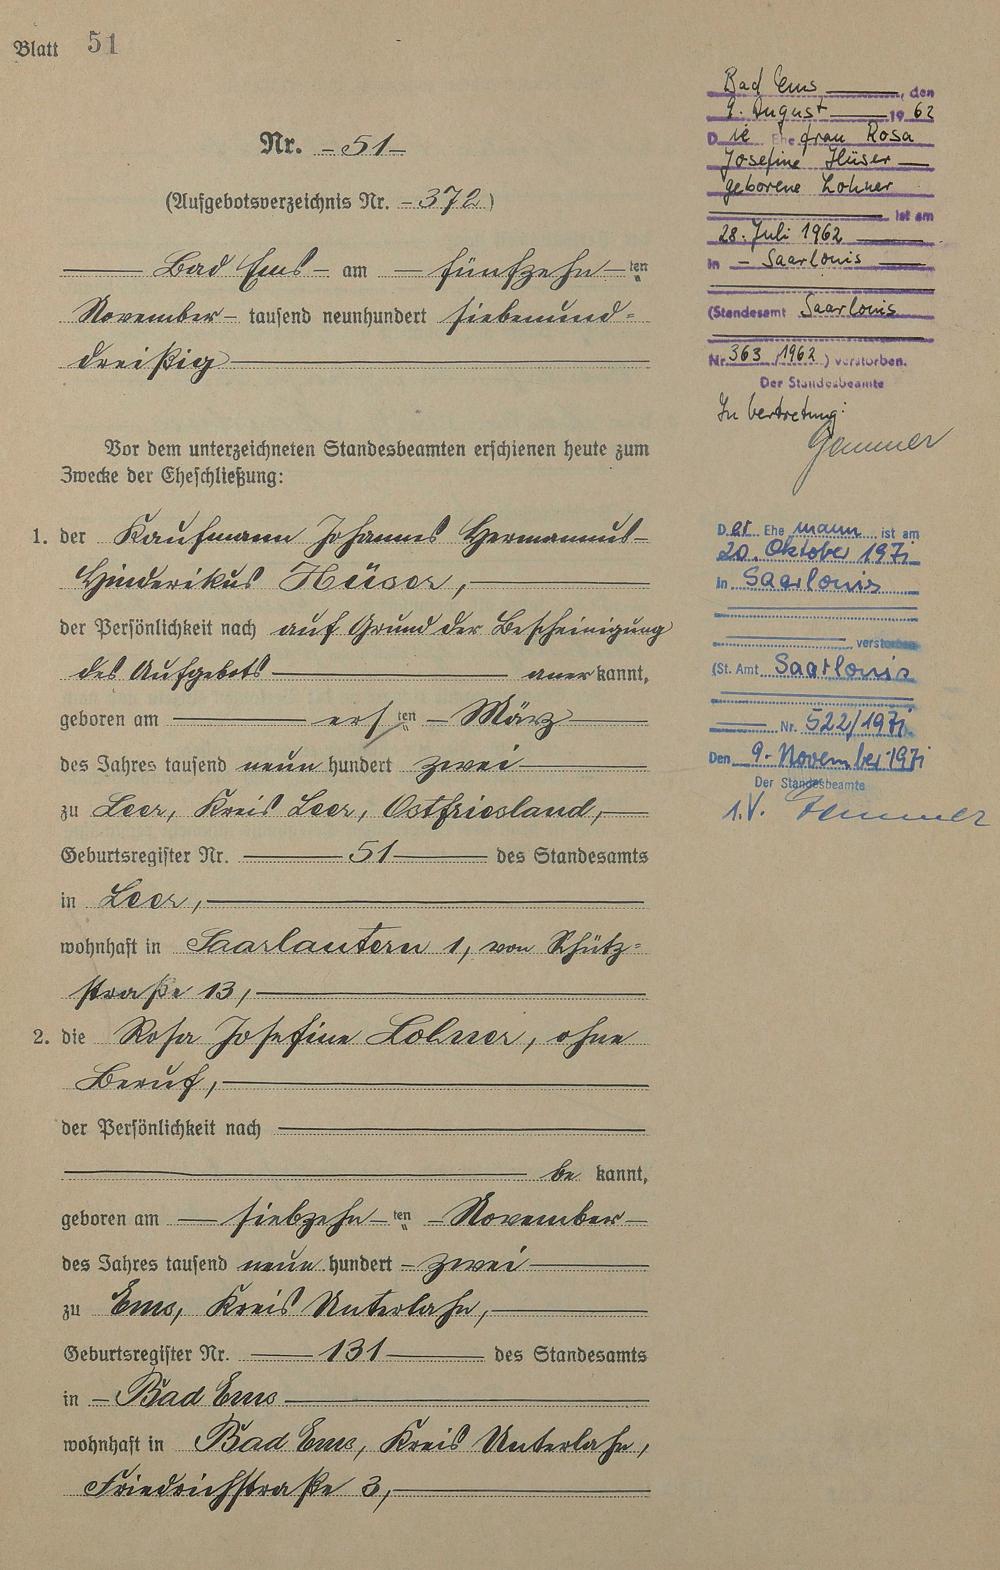 Blatt 51
Nr. - 51 -
(Aufgebotsverzeichnis Nr. - 372)
Bad Ems - am - fünfzehn - ten
November - tausend neunhundert siebenund-
dreißig
Vor dem unterzeichneten Standesbeamten erschienen heute zum
Zwecke der Eheschließung:
1. der Kaufmann Johannes Hermannus
Hinderikus Hüser,
der Persönlichkeit nach auf Grund der Bescheinigung
des Aufgebots anerkannt,
geboren am ersten - März
des Jahres tausend neun hundert zwei
zu Leer, Kreis Leer, Ostfriesland,
Geburtsregister Nr. 51 des Standesamts
in Leer,
wohnhaft in Saarlautern 1, von Schütz-
straße 13,
2. die Rosa Josefine Lohner, ohne
Beruf,
der Persönlichkeit nach
be kannt,
geboren am - siebzehn - ten - November -
des Jahres tausend neun hundert - zwei
zu Ems, Kreis Unterlahn,
Geburtsregister Nr. 131 des Standesamts
in - Bad Ems
wohnhaft in Bad Ems, Kreis Unterlahn,
Friedrichstraße 3,
Bad Ems, den
9. August 1962
Die Ehefrau Rosa
Josefine Hüser
geborene Lohner
ist am
28. Juli 1962
in - Saarlouis
(Standesamt Saarlouis
Nr. 363/1962) verstorben.
Der Standesbeamte
In Vertretung:
Der Ehemann ist am
20. Oktober 1971
in Saarlouis
verstorben
(St. Amt Saarlouis
Nr. 522/1971
Den 9. November 1971
Der Standesbeamte
I.V.